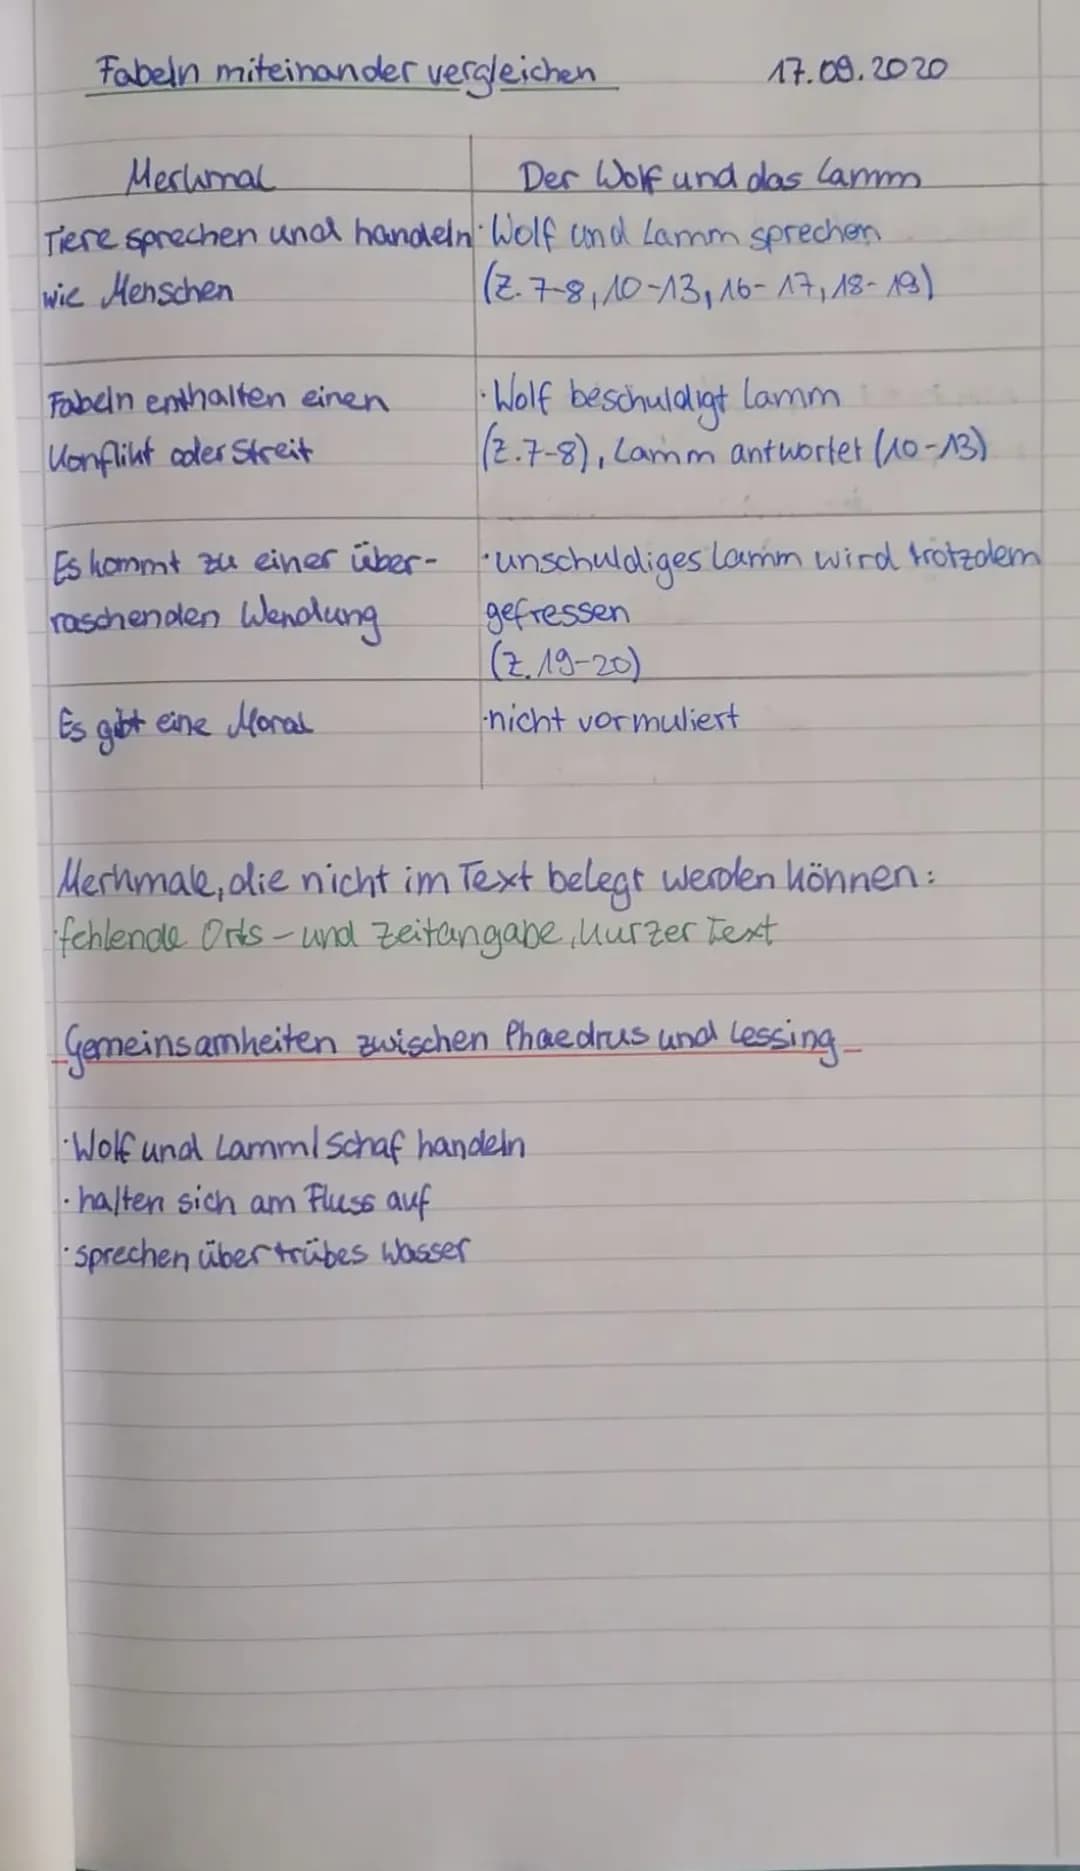 Fabeln miteinander vergleichen 17.09.2020
Merkmal Der Wolf und das Lamm
Tiere sprechen und handeln · Wolf und Lamm sprechen
wie Menschen (Z. 7-8, 10-13, 16-17, 18-19)
Fabeln enthalten einen · Wolf beschuldigt Lamm
Konflikt oder Streit (Z. 7-8), Lamm antwortet (10-13)
Es kommt zu einer über- · unschuldiges Lamm wird trotzdem
raschenden Wendung gefressen
(Z. 19-20)
Es gibt eine Moral · nicht vormuliert
Merkmale, die nicht im Text belegt werden können:
· fehlende Orts- und Zeitangabe, kurzer Text
Gemeinsamheiten zwischen Phaedrus und Lessing
· Wolf und Lamm/Schaf handeln
· halten sich am Fluss auf
· sprechen über trübes Wasser